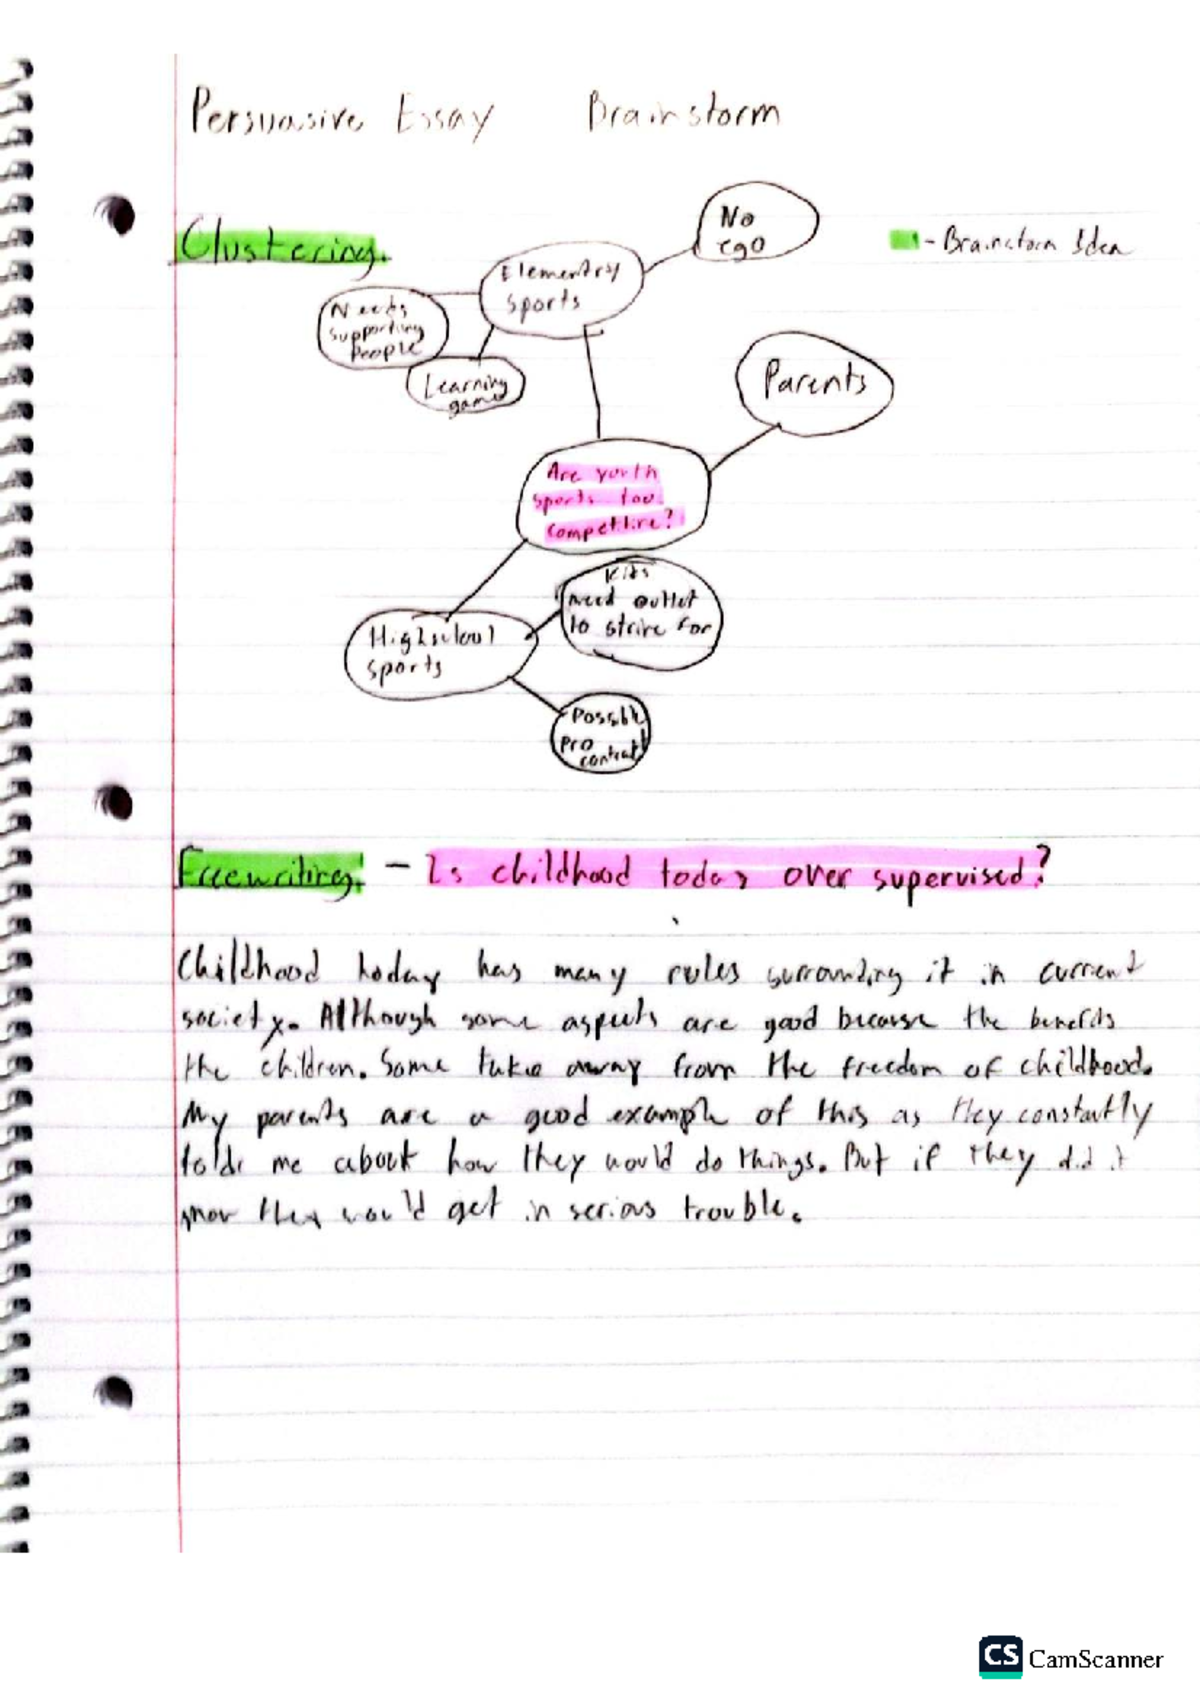 Persuasive Essay Brainstorm
Clustering.
- Brainstorm Idea
No
ego
Elementry
sports
Needs
supporting
people
Learning
game
Parents
Are youth
sports too
competitive?
Kids
need outlet
to strive for
Highschool
sports
Possible
pro
contract
Freewriting. - Is childhood today over supervised?
Childhood today has many rules surrounding it in current
society. Although some aspects are good because the benefits
the children. Some take away from the freedom of childhood.
My parents are a good example of this as they constantly
me about how they would do things. But if they did it
now they would get in serious trouble.
CS CamScanner